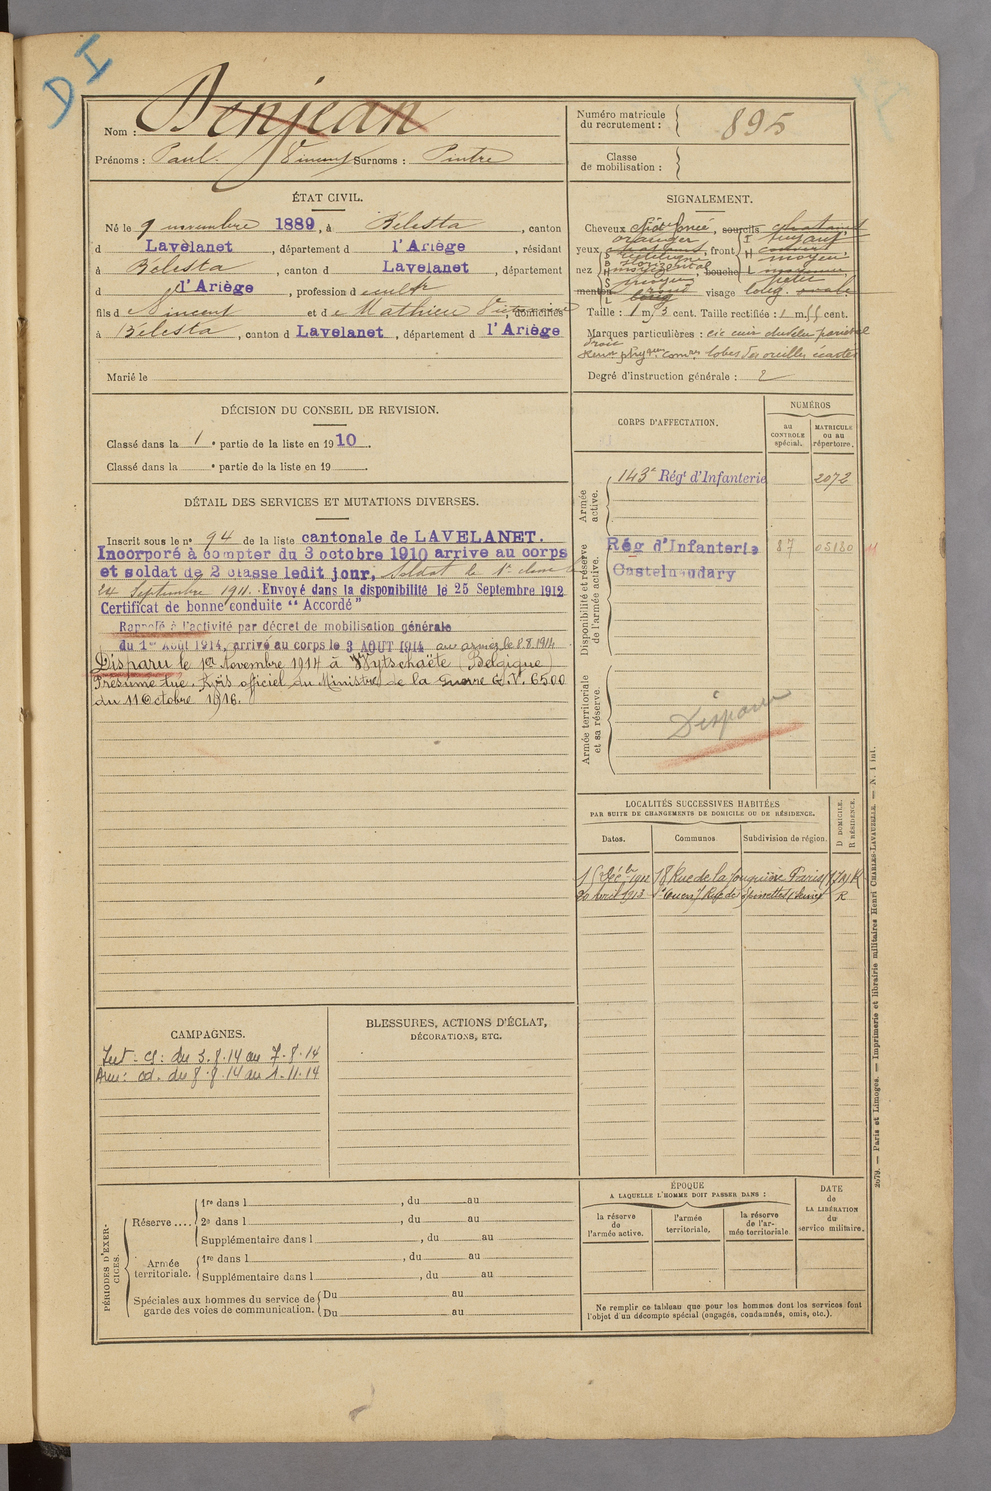 D I
Nom : Denjean
Prénoms : Paul Vincent Surnoms : Peintre
Numéro matricule du recrutement : 895
Classe de mobilisation :
ÉTAT CIVIL.
Né le 9 novembre 1889, à Bélesta, canton
d Lavelanet, département d l'Ariège, résidant
à Bélesta, canton d Lavelanet, département
d l'Ariège, profession d cult^r
fils d e Vincent et d e Mathieu domiciliés
à Bélesta, canton d Lavelanet, département d l'Ariège
Marié le
SIGNALEMENT.
Cheveux foncé, sourcils chatains
yeux front
nez moyen
menton visage long. ovale
Taille : 1 m. cent. Taille rectifiée : 1 m. cent.
Marques particulières : cic cuir chevelu pariétal
droit
lobes des oreilles écartés
Degré d'instruction générale : 2
DÉCISION DU CONSEIL DE REVISION.
Classé dans la 1e partie de la liste en 1910.
Classé dans la e partie de la liste en 19
DÉTAIL DES SERVICES ET MUTATIONS DIVERSES.
Inscrit sous le n° 94 de la liste cantonale de LAVELANET.
Incorporé à compter du 3 octobre 1910 arrive au corps
et soldat de 2 classe ledit jour, Soldat de 1e classe le
24 Septembre 1911. Envoyé dans la disponibilité le 25 Septembre 1912
Certificat de bonne conduite "Accordé"
Rappelé à l'activité par décret de mobilisation générale
du 1er Août 1914, arrivé au corps le 3 AOUT 1914 aux armées le 8.8.1914
Disparu le 1er Novembre 1914 à Wytschaëte (Belgique)
Présumé tué. Avis officiel du Ministre de la Guerre G.V. 6500
du 11 Octobre 1916.
CORPS D'AFFECTATION.
NUMÉROS
au CONTROLE spécial.
MATRICULE ou au répertoire.
Armée active.
143e Régt d'Infanterie 2072
Disponibilité et réserve de l'armée active.
Rég d'Infanterie 87 05180 11
Castelnaudary
Armée territoriale et sa réserve.
Disparu
LOCALITÉS SUCCESSIVES HABITÉES
PAR SUITE DE CHANGEMENTS DE DOMICILE OU DE RÉSIDENCE.
Dates. Communes. Subdivision de région. D DOMICILE. R RÉSIDENCE.
Déc. bre 1912 18 Rue de la Jonquière Paris (17) R
20 Avril 1913 St Ouen 7 Rue des Épinettes (Seine) R
CAMPAGNES.
Int : c : du 3.8.14 au 7.8.14
Arm : cd. du 8.8.14 au 1.11.14
BLESSURES, ACTIONS D'ÉCLAT,
DÉCORATIONS, ETC.
PÉRIODES D'EXERCICES.
Réserve .... 1re dans l , du au
2e dans l , du au
Supplémentaire dans l , du au
Armée territoriale. 1re dans l , du au
Supplémentaire dans l , du au
Spéciales aux hommes du service de garde des voies de communication. Du au
Du au
ÉPOQUE
A LAQUELLE L'HOMME DOIT PASSER DANS :
la réserve de l'armée active.
l'armée territoriale.
la réserve de l'armée territoriale
DATE de LA LIBÉRATION du service militaire.
Ne remplir ce tableau que pour les hommes dont les services font
l'objet d'un décompte spécial (engagés, condamnés, omis, etc.).
2079. — Paris et Limoges. — Imprimerie et librairie militaires Henri CHARLES-LAVAUZELLE. — N. 1 int.